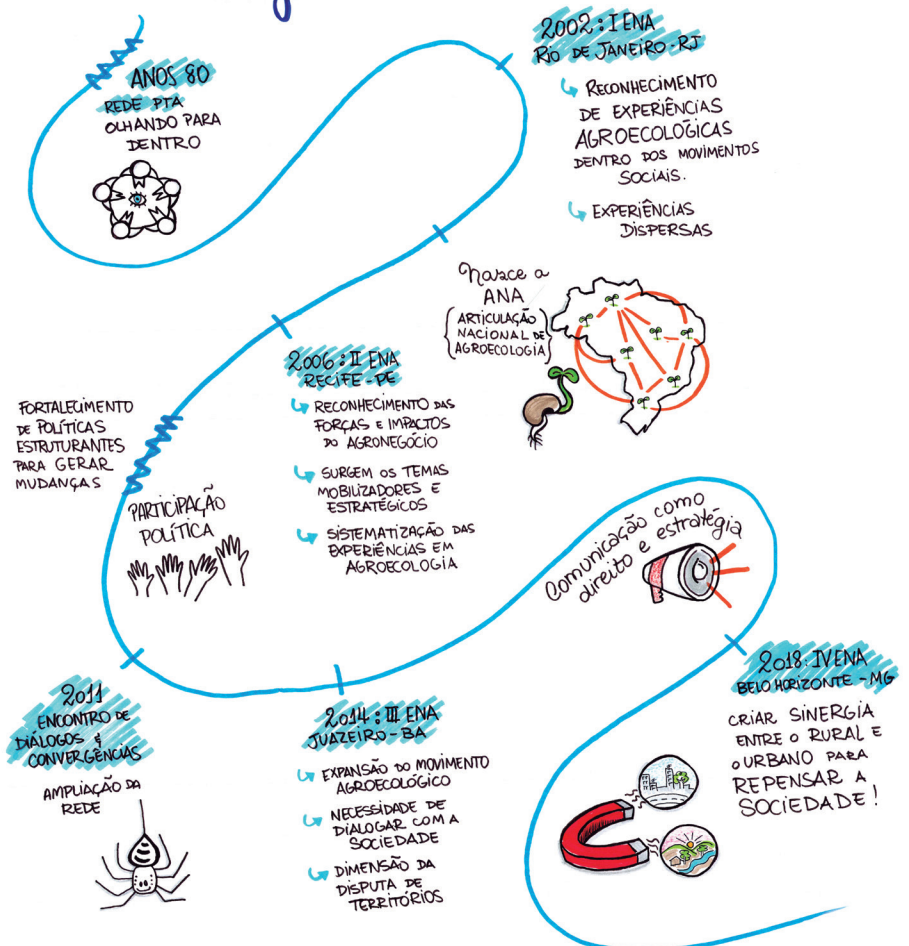 ANOS 80
REDE PTA
OLHANDO PARA
DENTRO
2002: I ENA
RIO DE JANEIRO-RJ
RECONHECIMENTO
DE EXPERIÊNCIAS
AGROECOLÓGICAS
DENTRO DOS MOVIMENTOS
SOCIAIS.
EXPERIÊNCIAS
DISPERSAS
Nasce a
ANA
(ARTICULAÇÃO
NACIONAL DE
AGROECOLOGIA)
2006: II ENA
RECIFE-PE
RECONHECIMENTO DAS
FORÇAS E IMPACTOS
DO AGRONEGÓCIO
SURGEM OS TEMAS
MOBILIZADORES E
ESTRATÉGICOS
SISTEMATIZAÇÃO DAS
EXPERIÊNCIAS EM
AGROECOLOGIA
FORTALECIMENTO
DE POLÍTICAS
ESTRUTURANTES
PARA GERAR
MUDANÇAS
PARTICIPAÇÃO
POLÍTICA
2011
ENCONTRO DE
DIÁLOGOS &
CONVERGÊNCIAS
AMPLIAÇÃO DA
REDE
2014: III ENA
JUAZEIRO-BA
EXPANSÃO DO MOVIMENTO
AGROECOLÓGICO
NECESSIDADE DE
DIALOGAR COM A
SOCIEDADE
DIMENSÃO DA
DISPUTA DE
TERRITÓRIOS
Comunicação como
direito e estratégia
2018: IV ENA
BELO HORIZONTE-MG
CRIAR SINERGIA
ENTRE O RURAL E
O URBANO PARA
REPENSAR A
SOCIEDADE!